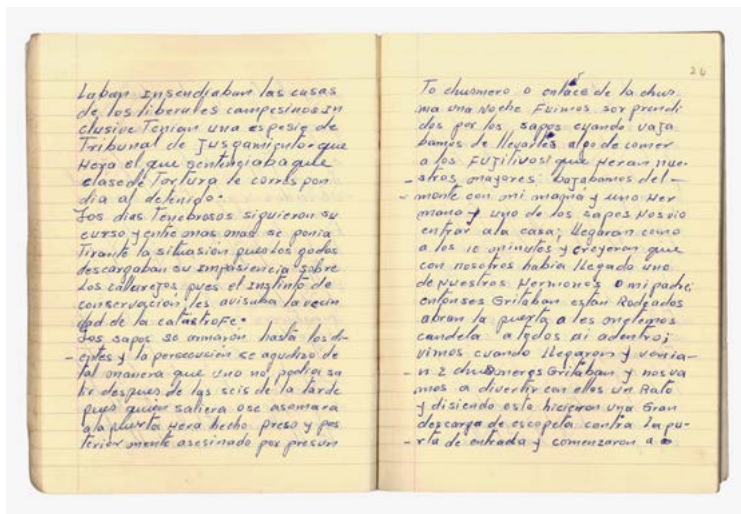 Laban insendiaban las casas
de los liberales campesinos in
clusive Tenian una espesie de
Tribunal de Jusgamientor que
Hera el que sentensiaba que
clase de Tortura le correspon
dia al detenido.
Los dias Tenebrosos siguieron su
curso y entre mas mas se ponia
Tirante la situasión pues los godos
descargaban su impasiensia sobre
Los callarejos pues el instinto de
conservación, les avisaba la vecin
dad de la catastrofe.
Los sapos se armarón hasta los di-
entes y la persecusión se agudizo de
tal manera que uno no podia sa
lir despues de las seis de la tarde
pues quien saliera ose asomara
ala puerta Hera hecho preso y pos
terior mente asesinado por presun
24
To chusmero o enlace de la chus
ma una Noche Fuimos sorprendi
dos por los sapos cuando vaja
bamos de llevarles algo de comer
a los FUJitivos! que Heran nue-
stros mayores; bajabamos del-
monte con mi mamá y uno Her
mano y uno de los sapos Nos vio
entrar ala casa; llegaron como
a los 10 minutos y creyeron que
con nosotros habia llegado uno
de Nuestros Hermonos o mi padre;
entonses Gritaban estan Rodeados
abran la puerta o les metemos
candela a todos ai adentro;
vimos cuando llegaron y venia-
n 2 chusmeros Gritaban y nos va
mos a divertir con ellos un Rato
y disiendo esto hicieron una Gran
descarga de escopeta contra la pu-
rta de entrada y comenzaron a